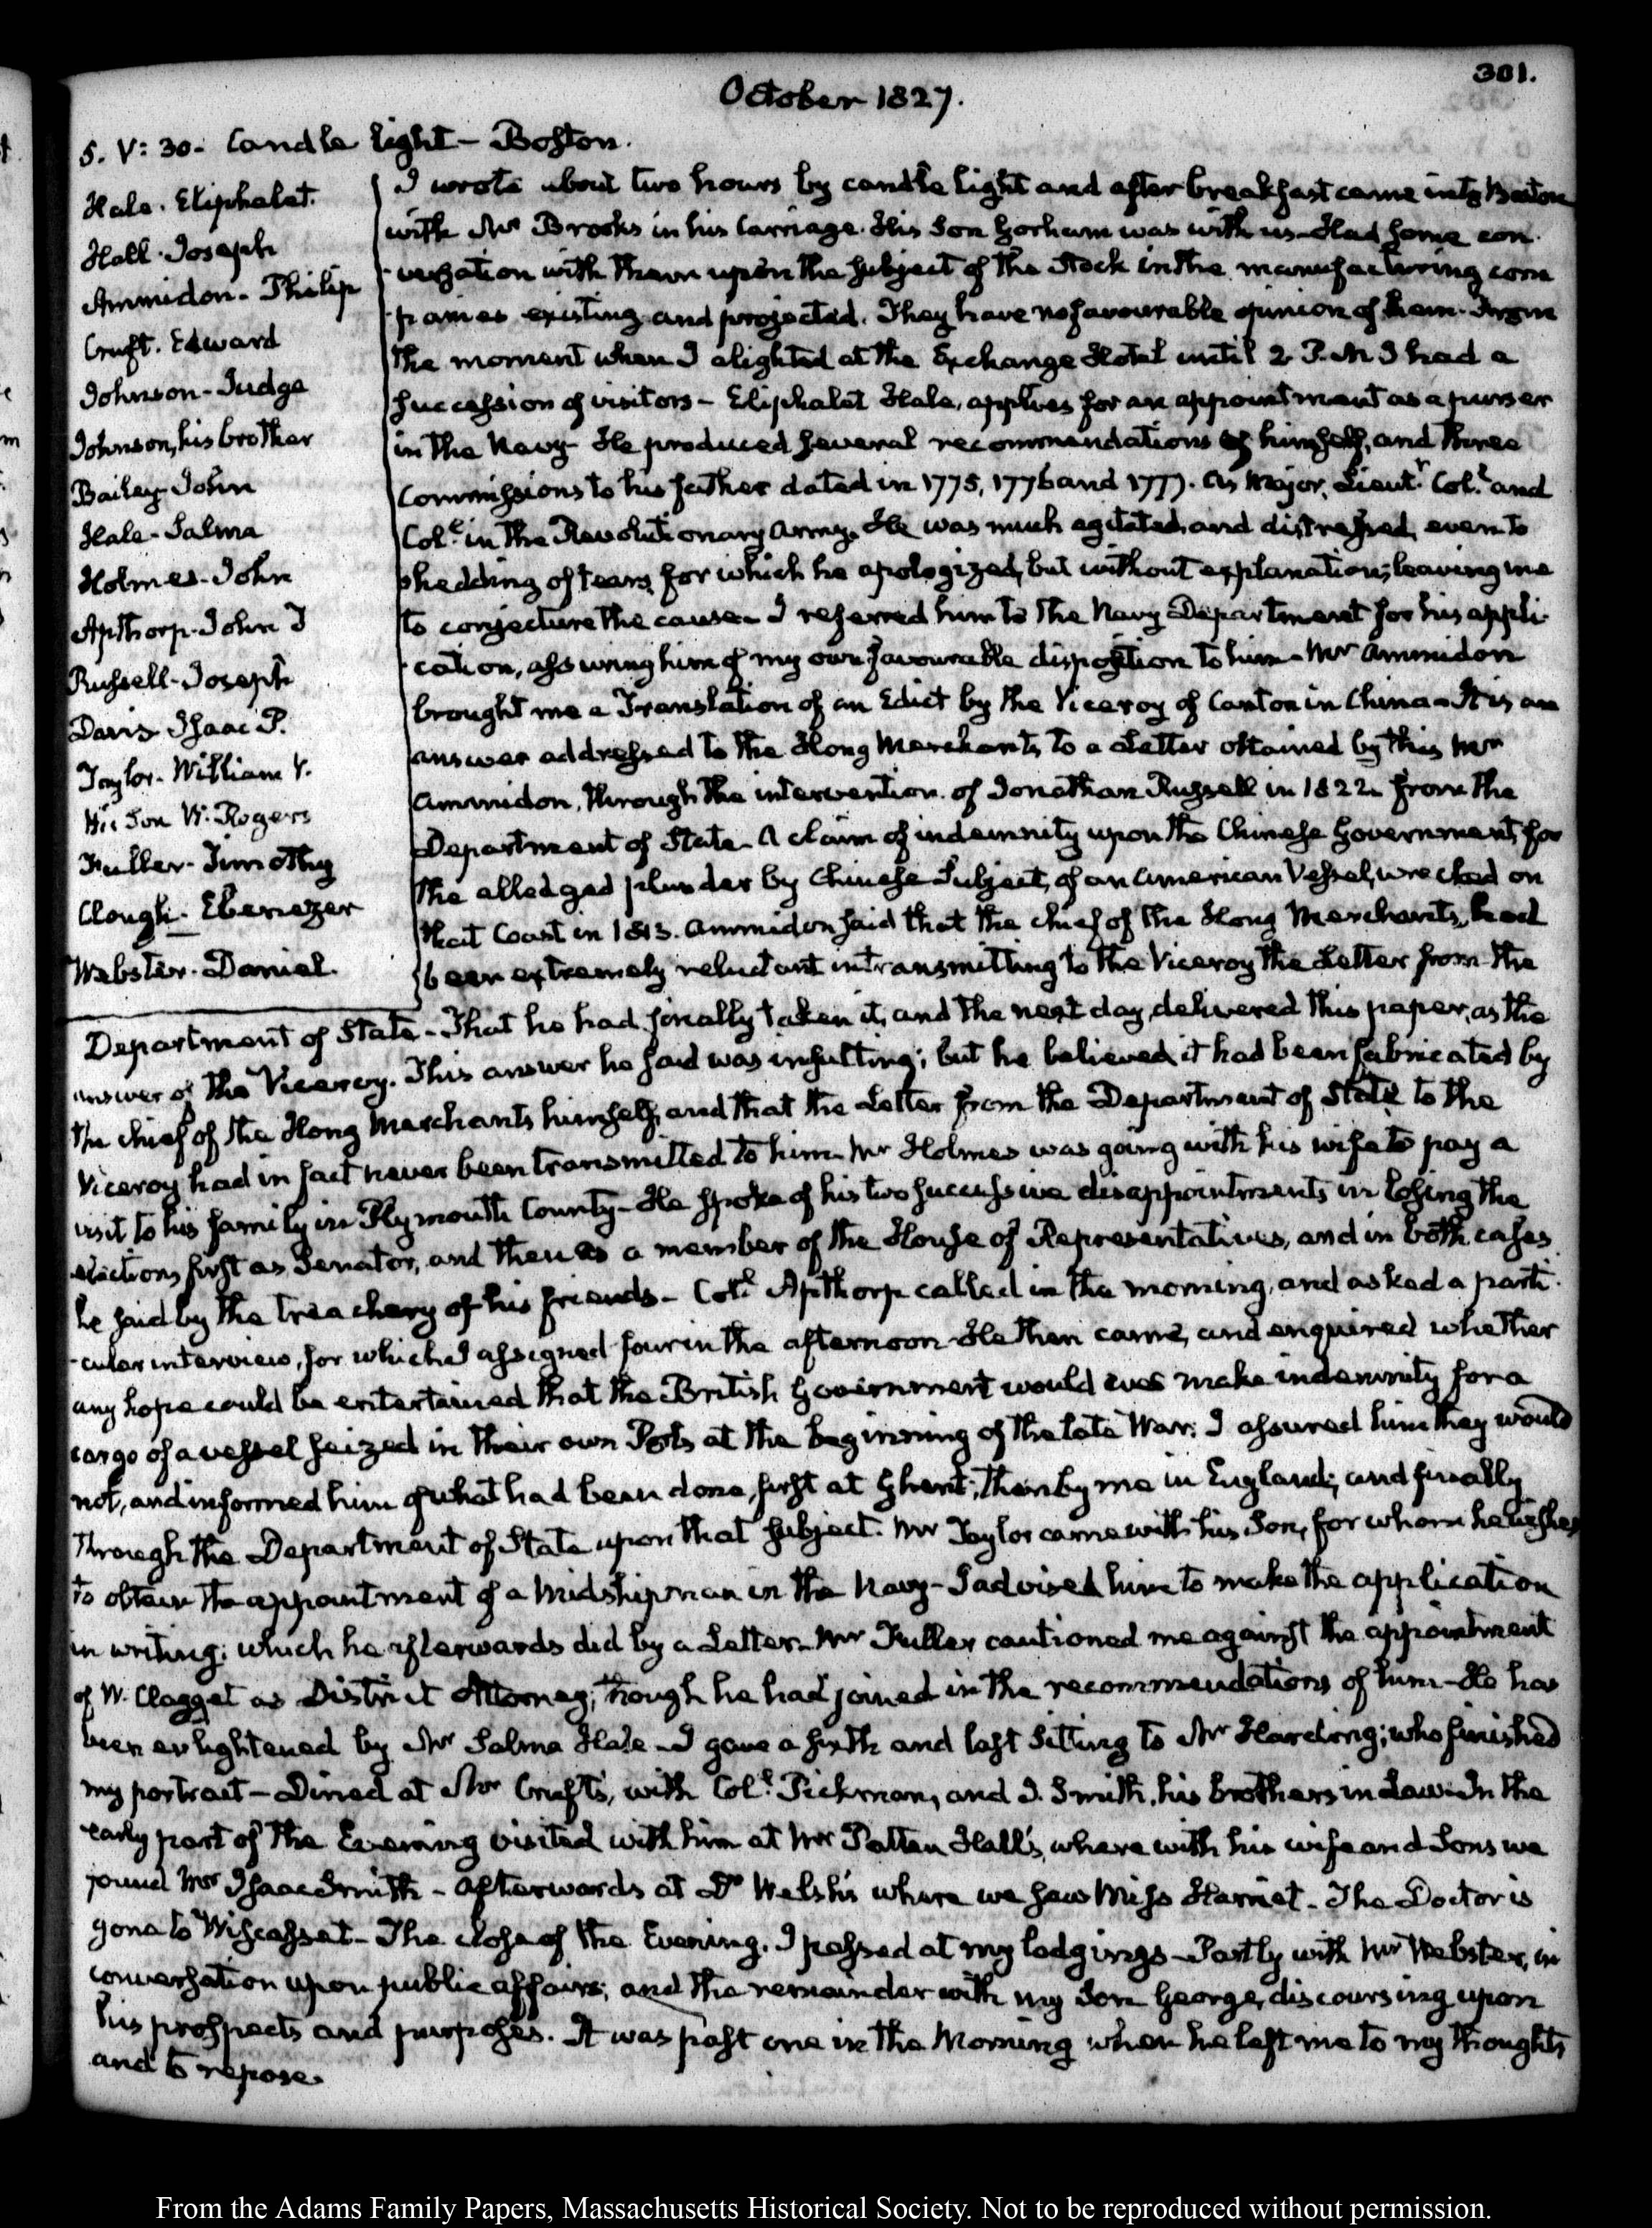 301.
October 1827.
5. V: 30. Candle light – Boston.
Hale. Eliphalet.
Hall. Joseph
Ammidon. Philip
Cruft. Edward
Johnson – Judge
Johnson, his brother
Bailey John
Hale – Salma
Holmes. John
Apthorp. John T
Russell – Joseph
Davis Isaac P.
Taylor. William V.
His Son W. Rogers
Fuller – Timothy
Clough. Ebenezer
Webster. Daniel.
I wrote about two hours by candle light and after breakfast came into Boston
with Mr Brooks in his Carriage. His Son Gorham was with us – Had some con
versation with them upon the subject of the Stock in the manufacturing com
panies existing and projected. They have no favourable opinion of them. From
the moment when I alighted at the Exchange Hotel until 2 P.M I had a
succession of visitors – Eliphalet Hale, applies for an appointment as a purser
in the Navy – He produced several recommendations of himself, and three
Commissions to his father dated in 1775, 1776 and 1777. as Major, Lieutt Coll and
Coll in the Revolutionary Army. He was much agitated and distressed, even to
shedding of tears, for which he apologized, but without explanation; leaving me
to conjecture the cause – I referred him to the Navy Department for his appli
cation, assuring him of my own favourable disposition to him – Mr Ammidon
brought me a Translation of an Edict by the Viceroy of Canton in China – It is an
answer addressed to the Hong Merchants, to a Letter obtained by this Mr
Ammidon, through the intervention of Jonathan Russell in 1822 from the
Department of State – A claim of indemnity upon the Chinese Government, for
the alledged plunder by Chinese Subjects, of an American Vessel, wrecked on
that Coast in 1813. Ammidon said that the chief of the Hong Merchants, had
been extremely reluctant in transmitting to the Viceroy the Letter from the
Department of State – That he had finally taken it, and the next day, delivered this paper, as the
answer of the Viceroy. This answer he said was insulting; but he believed it had been fabricated by
the chief of the Hong Merchants himself, and that the Letter from the Department of State to the
Viceroy had in fact never been transmitted to him – Mr Holmes was going with his wife to pay a
visit to his family in Plymouth County – He spoke of his two successive disappointments in losing the
elections, first as Senator, and then as a member of the House of Representatives, and in both cases
he said by the treachery of his friends – Coll Apthorp called in the morning, and asked a parti
cular interview, for which I assigned four in the afternoon – He then came, and enquired whether
any hope could be entertained that the British Government would ever make indemnity for a
cargo of a vessel seized in their own Ports at the beginning of the late War: I assured him they would
not, and informed him of what had been done, first at Ghent; then by me in England; and finally
through the Department of State upon that subject. Mr Taylor came with his Son, for whom he wishes
to obtain the appointment of a Midshipman in the Navy – I advised him to make the application
in writing; which he afterwards did by a Letter – Mr Fuller cautioned me against the appointment
of W. Clagget as District Attorney; though he had joined in the recommendations of him – He has
been enlightened by Mr Salma Hale – I gave a sixth and last sitting to Mr Harding; who finished
my portrait – Dined at Mr Cruft's, with Coll Pickman, and I. Smith, his brothers in Law – In the
early part of the Evening visited with him at Mr Patten Hall's, where with his wife and Sons we
found Mr Isaac Smith – Afterwards at Dr Welsh's where we saw Miss Harriet – The Doctor is
gone to Wiscasset – The close of the Evening. I passed at my lodgings – Partly with Mr Webster, in
conversation upon public affairs; and the remainder with my Son George, discoursing upon
his prospects and purposes. It was past one in the Morning when he left me to my thoughts
and to repose.
From the Adams Family Papers, Massachusetts Historical Society. Not to be reproduced without permission.